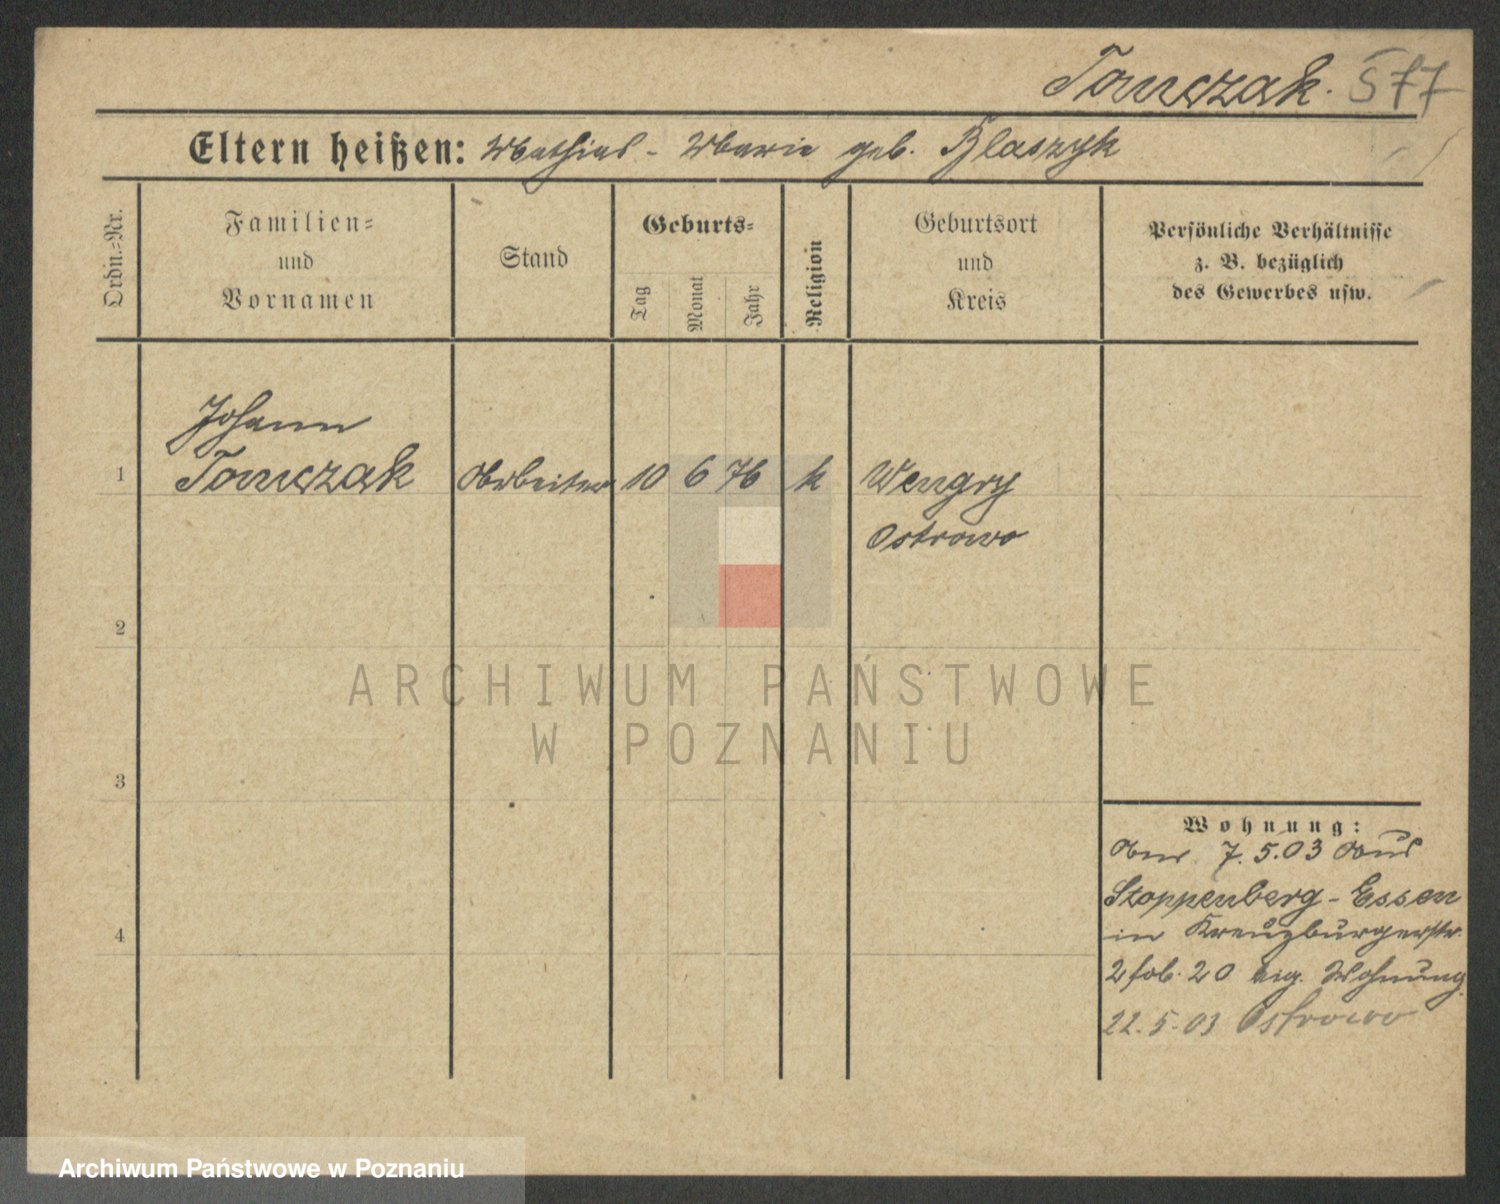 Tomczak. 577
Eltern heißen: Mathias - Marie geb. Blaszyk
Ordn.-Nr.
Familien-
und
Vornamen
Stand
Geburts-
Tag
Monat
Jahr
Religion
Geburtsort
und
Kreis
Persönliche Verhältnisse
z. B. bezüglich
des Gewerbes usw.
Johann
1 Tomczak Arbeiter 10 6 76 k Wengry
Ostrowo
2
ARCHIWUM PAŃSTWOWE
W POZNANIU
3
Wohnung:
Am 7.5.03 aus
Stoppenberg-Essen
in Kreuzburgerstr.
20 eig. Wohnung.
22.5.03 Ostrowo
4
Archiwum Państwowe w Poznaniu